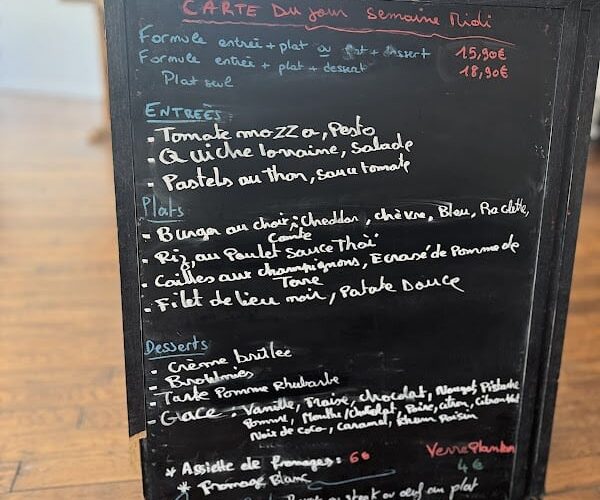 CARTE Du jour Semaine Midi
Formule entrée + plat ou plat + dessert 15,90€
Formule entrée + plat + dessert 18,90€
Plat seul
ENTREES
- Tomate mozza, Pesto
- Quiche lorraine, Salade
- Pastels au thon, sauce tomate
Plats
- Burger au choix; Cheddar, chèvre, Bleu, Raclette,
Comté
- Riz, au Poulet Sauce Thaï
- Cailles aux champignons, Ecrasé de Pomme de
Terre
- Filet de lieu noir, Patate Douce
Desserts
- Crème brûlée
- Brownies
- Tarte Pomme Rhubarbe
- Glace : Vanille, Fraise, chocolat, Nougat, Pistache
Pomme, Menthe/chocolat, Poire, citron, Citron Vert
Noix de coco, caramel, Rhum Raisin
* Assiette de fromages : 6€
* Fromage Blanc
Verre Planteur
4€
steak ou oeuf au plat